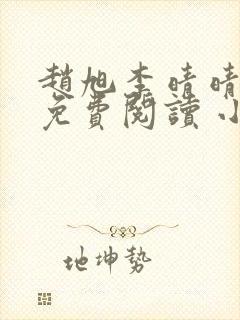 趙旭李晴晴
免費閱讀小
地坤勢